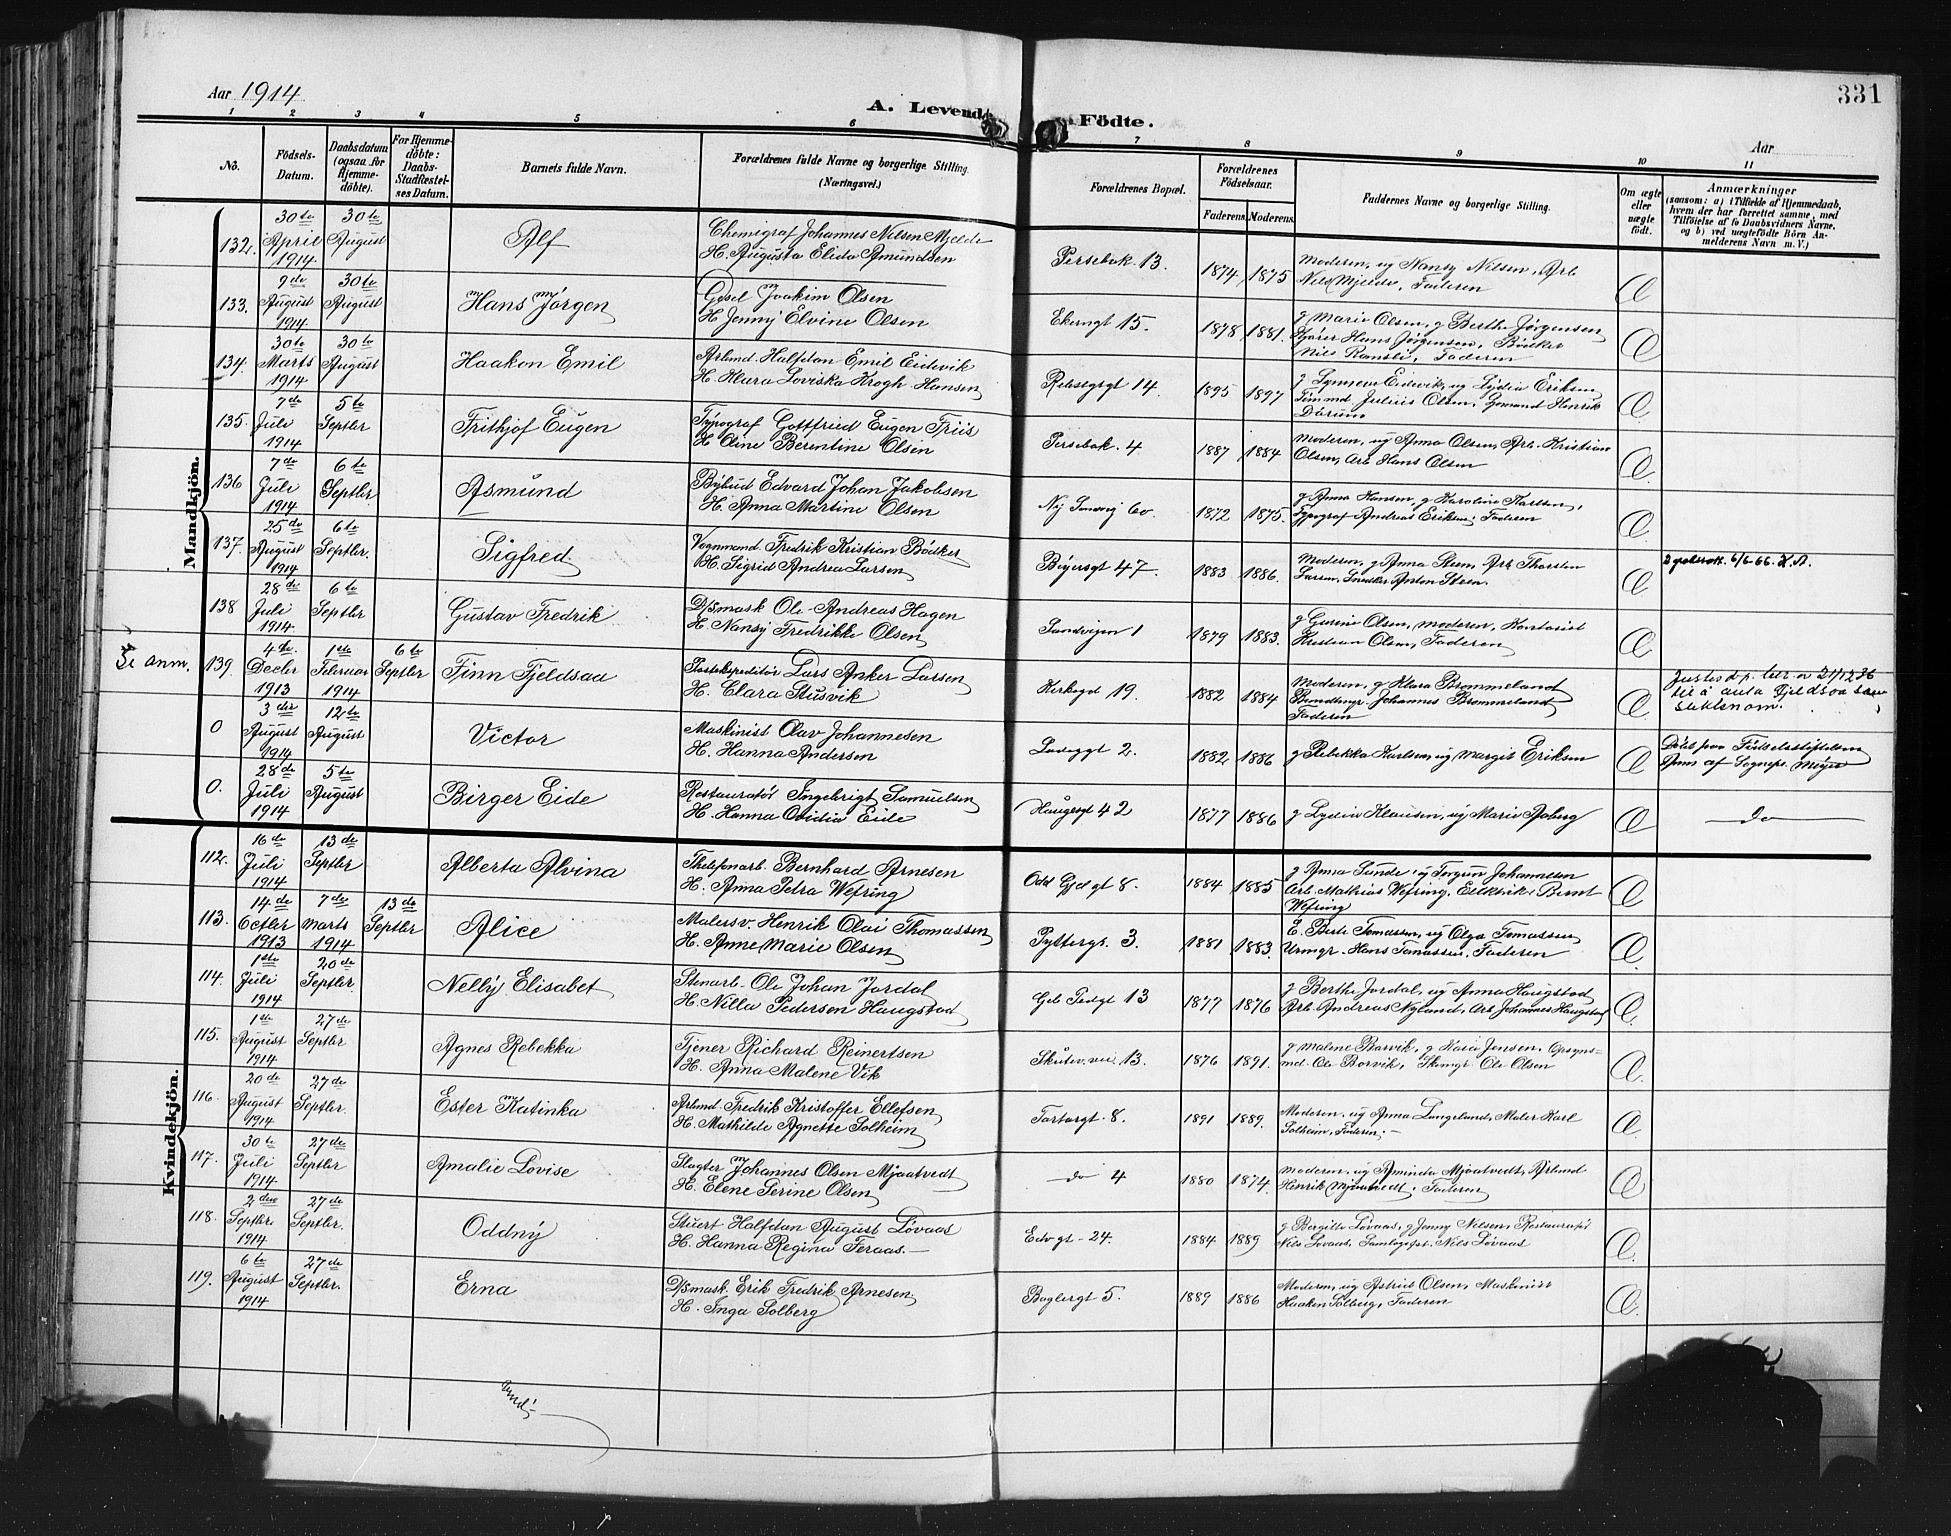 331
Aar 1914
A. Levende Födte.
Aar
1 2 3 4 5 6 7 8 9 10 11
No.
Födsels-
Datum.
Daabsdatum
(ogsaa for
Hjemme-
döbte).
For Hjemme-
döbte:
Daabs-
Stadfæstel-
ses Datum.
Barnets fulde Navn.
Forældrenes fulde Navne og borgerlige Stilling.
(Næringsvei.)
Forældrenes Bopæl.
Forældrenes
Födselsaar.
Faderens. Moderens.
Faddernes Navne og borgerlige Stilling.
Om ægte
eller
uægte
födt.
Anmærkninger
(saasom: a) i Tilfælde af Hjemmedaab,
hvem der har forrettet samme, med
Tilföielse af to Daabsvidners Navne,
og b) ved uægtefödte Börn An-
melderens Navn m. V.)
Mandkjön.
132. 30te April 1914 30te August Alf
Chemigraf Johannes Nilsen Mjelde
H. Augusta Elida Amundsen
Persebak. 13. 1874 1875
Moderen, ug Nansy Nilsen, Arb
Nils Mjelde, Faderen
133. 9de August 1914 30te August Hans Jörgen
Gösel Joakim Olsen
H. Jenny Elvine Olsen
Ekerngt 15. 1878 1881.
g Marie Olsen, g Berthe Jörgensen
Hans Jörgensen, Bödker
Nils Faderen
134. 30te Marts 1914 30te August Haakon Emil
Arbmd Halfdan Emil Eidevik
H. Klara Loviska Krogh Hansen
14. 1895 1897
g Eidevik, ug Lydia Eriksen
Tömmd Julius Olsen, Henrik
135. 7de Juli 1914 5te Septbr Frithjof Eugen
Typograf Gottfried Eugen Friis
H. Oline Berentine Olsen
Persebak. 4 1887 1884
Moderen, ug Anna Olsen, Arb. Kristian
Olsen, Arb Hans Olsen
136 7de Juli 1914 6te Septbr Asmund
Bybud Edvard Johan Jakobsen
H. Anna Martine Olsen
Ny Sandvig 60. 1872 1875.
g Anna Hansen, g Karoline Karlsen,
Typograf Andreas Eriksen, Faderen
137. 25de August 1914 6te Septbr. Sigfred
Vognmand Fredrik Kristian Bödker
H. Sigrid Andrea Larsen
Böyersgt 47. 1883 1886.
Moderen, g Anna Steen, Arb Thorsten
Larsen, Smedk Anton Steen
6/6 66. K.A.
138 28de Juli 1914 6te Septbr Gustav Fredrik
D/Smask Ole Andreas Hagen
H. Nansy Fredrikke Olsen
Sandvigen 1 1879 1883.
g Gurine Olsen, Moderen, Kontorist
Kristian Olsen, Faderen
Se anm. 139. 4de Decbr 1913 1ste Februar 1914 6te Septbr Finn Fjeldsaa
Postekspeditör Lars Anker Larsen
H. Clara Stusvik
Kirkegt 19. 1882 1884
Moderen, g Klara Brommeland
Johannes Brommeland
Faderen
til å anta Fjeldsaa som
slektsnavn.
0 3die August 1914 12te August Victor
Maskinist Olav Johannesen
H. Hanna Andersen
Ladeggt 2. 1882 1886
g Rebekka Karlsen, ug Margit Eriksen
Döbt paa Födselsstiftelsen
af Sognepr. Meyer
0. 28de Juli 1914 5te August Birger Eide
Restauratör Ingebrigt Samuelsen
H. Hanna Ovidia Eide
Haugesgt 42 1877 1886
g Lydia Klausen, ug Marie Aaberg
do
Kvindekjön.
112. 16de Juli 1914 13de Septbr Alberta Alvina
Thelefonarb. Bernhard Arnesen
H. Anna Petra Wefring
Odd Gjel gt 8. 1884 1885
g Anna Sunde, ug Torgun Johannesen
Arb. Mathias Wefring, Elektrik. Bernt
Wefring
113. 14de Octbr 1913 7de Marts 1914 13de Septbr Alice
Malersv. Henrik Olai Thomassen
H. Anne Marie Olsen
Pyttergt. 3. 1881 1883.
E. Berte Tomassen, ug Olga Tomassen
Urmgr. Hans Tomassen, Faderen
114. 1ste Juli 1914 20de Septbr. Nelly Elisabet
Stenarb. Ole Johan Jordal
H. Nilla Pedersen Haugstad
13 1877 1876
g Berthe Jordal, ug Anna Haugstad
Arb. Andreas Nyland, Arb. Johannes Haugstad
115. 1ste August 1914 27de Septbr. Agnes Rebekka
Tjener Richard Reinertsen
H. Anna Malene Vik
Skutev. vei 13. 1876 1891.
g Malene Barvik, g Kaia Jensen, Opsyns-
md. Ole Barvik, Skomgr Ole Olsen
116. 20de August 1914 27de Septbr. Ester Katinka
Arbmd Fredrik Kristoffer Ellefsen
H. Mathilde Agnette Solheim
Tartargt. 8. 1891 1889.
Moderen, ug Anna Langeland, Maler Karl
Solheim, Faderen.
117. 30te Juli 1914 27de Septbr Amalie Lovise
Slagter Johannes Olsen Mjaatvedt
H. Elene Serine Olsen
do 4 1880 1874.
Moderen, ug Aminda Mjaatvedt, Arbmd
Henrik Mjaatvedt, Faderen
118. 2den Septbr. 1914 27de Septbr. Oddny
Stuert Halfdan August Lövaas
H. Hanna Regina Feraas.
Edv gt 24 1884 1889
g Bergitte Lövaas, g Jenny Nilsen, Restauratör
Nils Lövaas, Nils Lövaas
119. 6te August 1914 27de Septbr. Erna
D/Smask. Erik Fredrik Arnesen
H. Inga Solberg
Baglergt 5. 1889 1886
Moderen, ug Astrid Olsen, Maskinist
Haakon Solberg, Faderen
Vend!